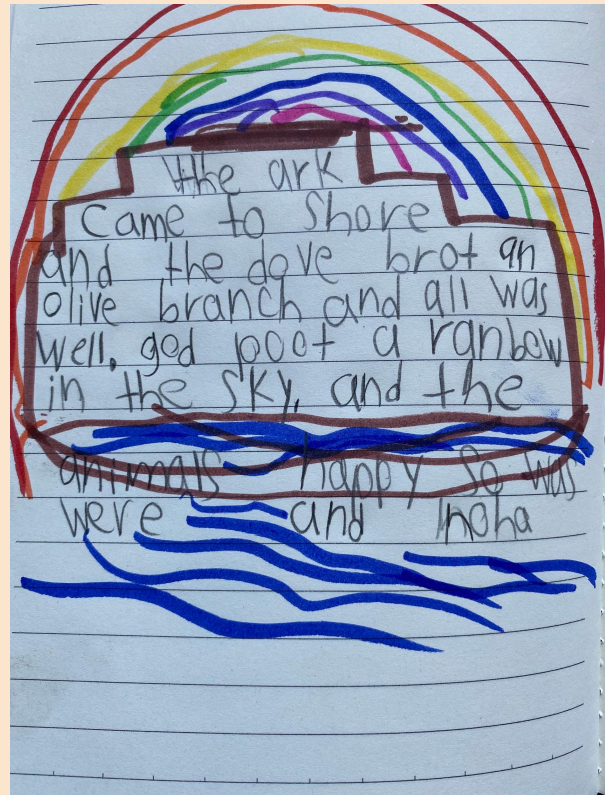 the ark
came to shore
and the dove brot an
olive branch and all was
well. god poot a ranbow
in the sky, and the
animals happy so was
were and noha